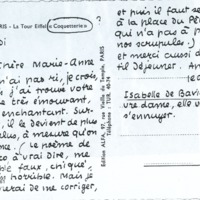 RIS - La Tour Eiffel « Coquetterie »
di
Chère Marie-Anne
n'ai pas ri, je crois,
j'ai trouvé votre
très émouvant,
enchantant. Sur-
, il devient de plus
lus, à mesure qu'on
me. (le poème de
à vrai dire, me
ble faux, chiqué,
horrible. Mais je
vrai de me corriger,
Edition ALFA, 97, rue Vieille du Temple, PARIS
Téléphone : TUR. 40-
et puis il faut se
à la place du Pè
qui n'a pas à
nos scrupules.)
et merci aussi d
til déjeuner. A
Isabelle de Bavi
ure dame, elle v
s'ennuyer.